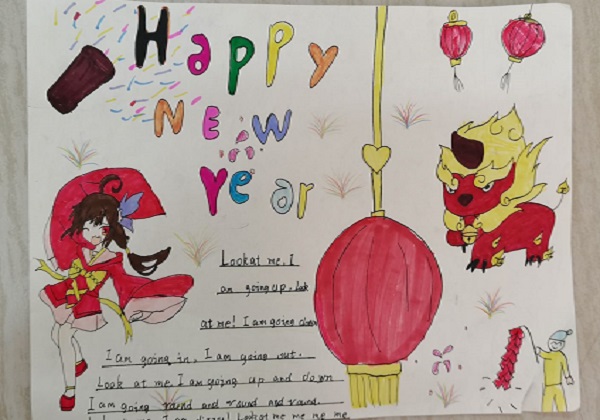 Happy
New
Year
Look at me. I
am going up. Look
at me! I am going down
I am going in. I am going out.
Look at me. I am going up and down
I am going round and round and round.
Look at me